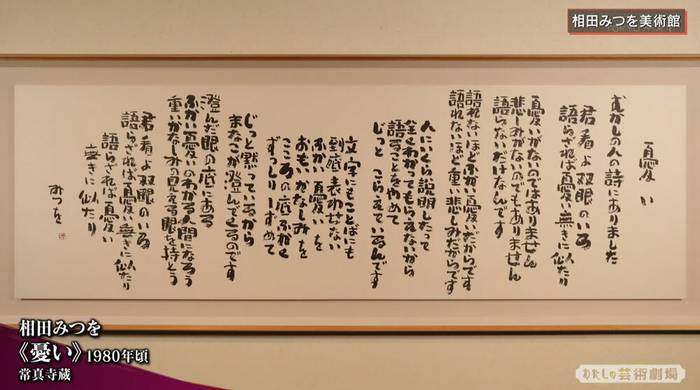 相田みつを美術館
憂い
むかしの人の詩にありました
君看よ双眼のいろ
語らざれば憂い無きに似たり
憂いがないのではありません
悲しみがないのでもありません
語らないだけなんです
語れないほどふかい憂いだからです
語れないほど重い悲しみだからです
人にいくら説明したって
全くわかってもらえないから
語ることをやめて
じっとこらえているんです
文字にもことばにも
到底表わせない
ふかい憂いを
おもいかなしみを
こころの底ふかく
ずっしりしずめて
じっと黙っているから
まなこが澄んでくるのです
澄んだ眼の底にある
ふかい憂いのわかる人間になろう
重いかなしみの見える眼を持とう
君看よ双眼のいろ
語らざれば憂い無きに似たり
語らざれば憂い
無きに似たり
みつを
相田みつを
《憂い》1980年頃
常真寺蔵
わたしの芸術劇場